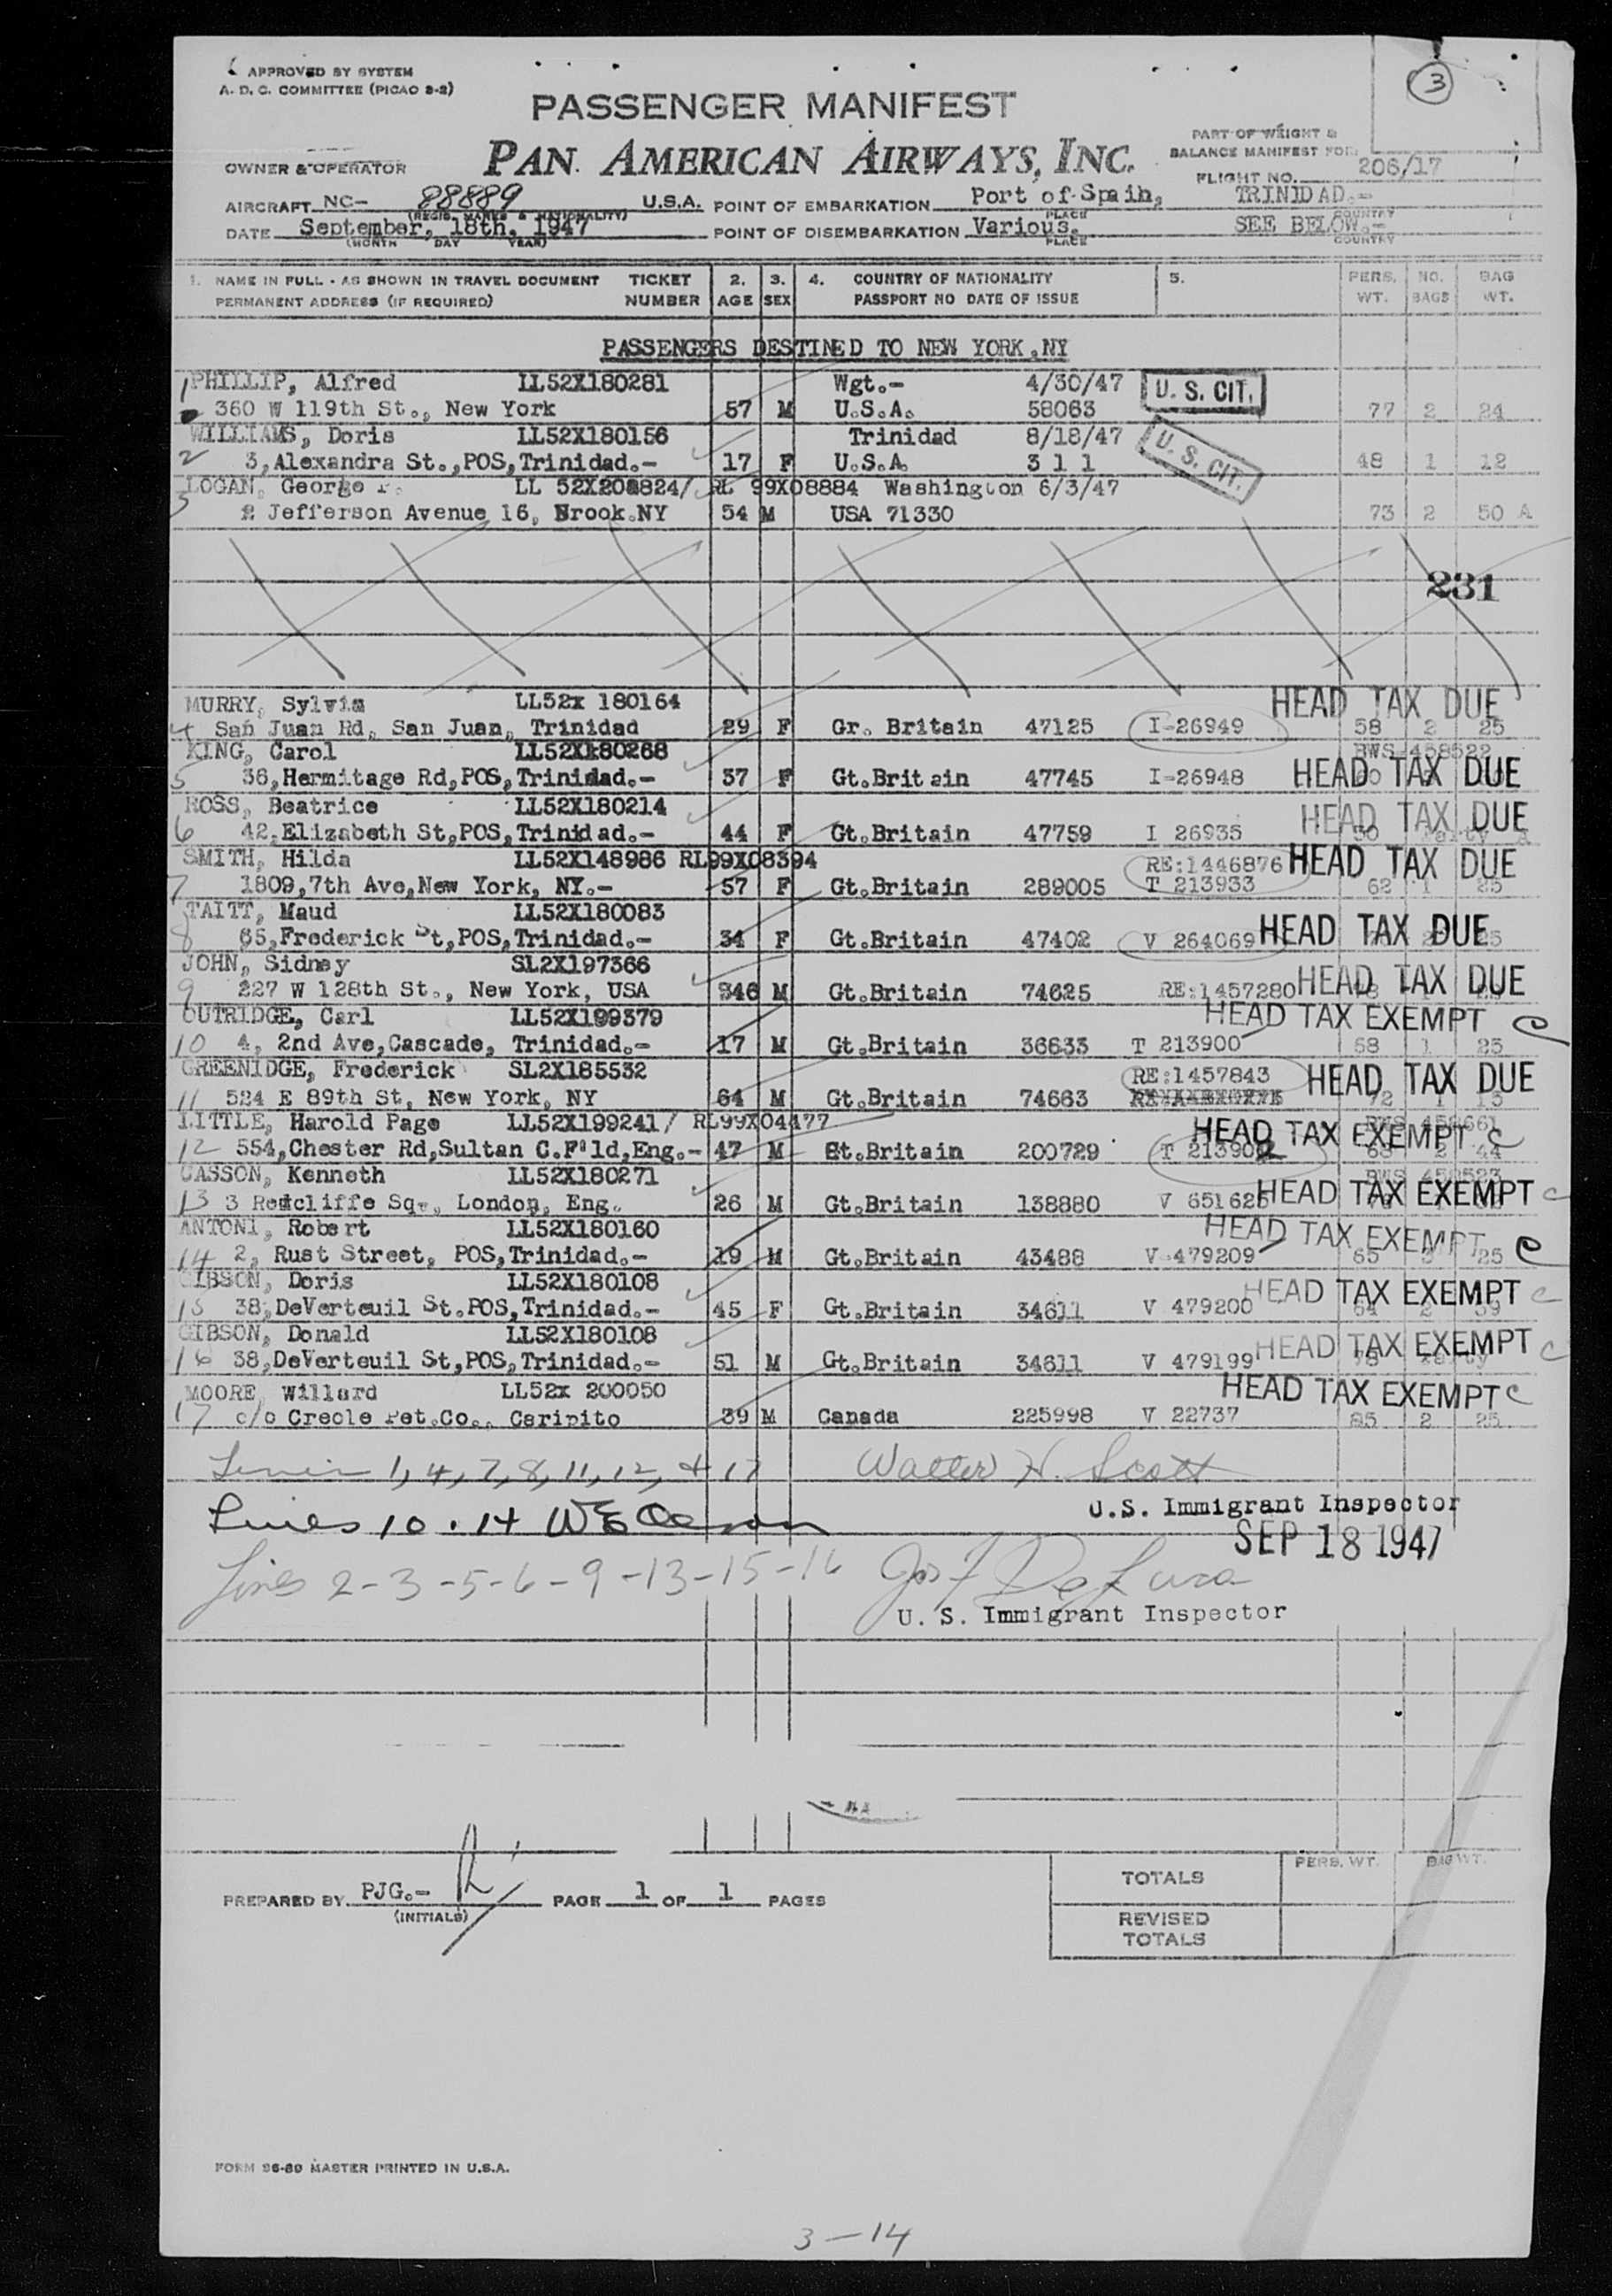 APPROVED BY SYSTEM
A. D. C. COMMITTEE (PICAO 3-2)
3
PASSENGER MANIFEST
PAN AMERICAN AIRWAYS, INC.
PART OF WEIGHT &
BALANCE MANIFEST FOR
FLIGHT NO. 206/17
OWNER & OPERATOR
AIRCRAFT NC- 88889 U.S.A. POINT OF EMBARKATION Port of Spain, TRINIDAD.-
(REGIS. MARKS & NATIONALITY) PLACE COUNTRY
DATE September, 18th, 1947 POINT OF DISEMBARKATION Various. SEE BELOW.-
(MONTH DAY YEAR) PLACE COUNTRY
1. NAME IN FULL - AS SHOWN IN TRAVEL DOCUMENT TICKET 2. 3. 4. COUNTRY OF NATIONALITY 5. PERS. NO. BAG
PERMANENT ADDRESS (IF REQUIRED) NUMBER AGE SEX PASSPORT NO DATE OF ISSUE WT. BAGS WT.
PASSENGERS DESTINED TO NEW YORK.NY
1 PHILLIP, Alfred LL52X180281 Wgt.- 4/30/47 U. S. CIT.
360 W 119th St., New York 57 M U.S.A. 58063 77 2 24
WILLIAMS, Doris LL52X180156 Trinidad 8/18/47 U. S. CIT.
2 3,Alexandra St.,POS,Trinidad.- 17 F U.S.A. 3 1 1 48 1 12
LOGAN, George LL 52X208824/ RL 99X08884 Washington 6/3/47
3 2 Jefferson Avenue 16, Brook.NY 54 M USA 71330 73 2 50 A
231
MURRY, Sylvia LL52x 180164 HEAD TAX DUE
4 San Juan Rd, San Juan, Trinidad 29 F Gr. Britain 47125 I-26949 58 2 25
KING, Carol LL52X180268 BWS 458522
5 36,Hermitage Rd,POS,Trinidad.- 37 F Gt.Britain 47745 I-26948 HEAD TAX DUE
ROSS, Beatrice LL52X180214 HEAD TAX DUE
6 42,Elizabeth St,POS,Trinidad.- 44 F Gt.Britain 47759 I 26935
SMITH, Hilda LL52X148986 RL99X08394 RE:1446876 HEAD TAX DUE
7 1809,7th Ave,New York, NY.- 57 F Gt.Britain 289005 T 213933 62 1 25
TAITT, Maud LL52X180083
8 65,Frederick St,POS,Trinidad.- 34 F Gt.Britain 47402 V 264069 HEAD TAX DUE
JOHN, Sidney SL2X197366
9 227 W 128th St., New York, USA 346 M Gt.Britain 74625 RE:1457280 HEAD TAX DUE
OUTRIDGE, Carl LL52X199379 HEAD TAX EXEMPT C
10 4, 2nd Ave,Cascade, Trinidad.- 17 M Gt.Britain 36633 T 213900 68 1 25
GREENIDGE, Frederick SL2X185532 RE:1457843 HEAD TAX DUE
11 524 E 89th St, New York, NY 64 M Gt.Britain 74663 72 1 15
LITTLE, Harold Page LL52X199241/ RL99X04477 HEAD TAX EXEMPT C
12 554,Chester Rd,Sultan C.F'ld,Eng.- 47 M Gt.Britain 200729 T 213902 63 2 44
CASSON, Kenneth LL52X180271 BWS 458523
13 3 Redcliffe Sq., London, Eng. 26 M Gt.Britain 138880 V 651625 HEAD TAX EXEMPT C
ANTONI, Robert LL52X180160 HEAD TAX EXEMPT C
14 2, Rust Street, POS,Trinidad.- 19 M Gt.Britain 43488 V-479209 65 3 25
GIBSON, Doris LL52X180108 HEAD TAX EXEMPT C
15 38,DeVerteuil St.POS,Trinidad.- 45 F Gt.Britain 34611 V 479200 64 2 39
GIBSON, Donald LL52X180108 HEAD TAX EXEMPT C
16 38,DeVerteuil St,POS,Trinidad.- 51 M Gt.Britain 34611 V 479199 78
MOORE, Willard LL52x 200050 HEAD TAX EXEMPT C
17 c/o Creole Pet.Co., Caripito 39 M Canada 225998 V 22737 85 2 25
1, 4, 7, 8, 11, 12, & 17 Walter H. Scott
U.S. Immigrant Inspector
Lines 10 . 14
SEP 18 1947
Lines 2-3-5-6-9-13-15-16 Jos F DeLuca
U. S. Immigrant Inspector
TOTALS PERS. WT. BAG WT.
PREPARED BY PJG.- PAGE 1 OF 1 PAGES
(INITIALS)
REVISED
TOTALS
FORM 96-89 MASTER PRINTED IN U.S.A.
3-14